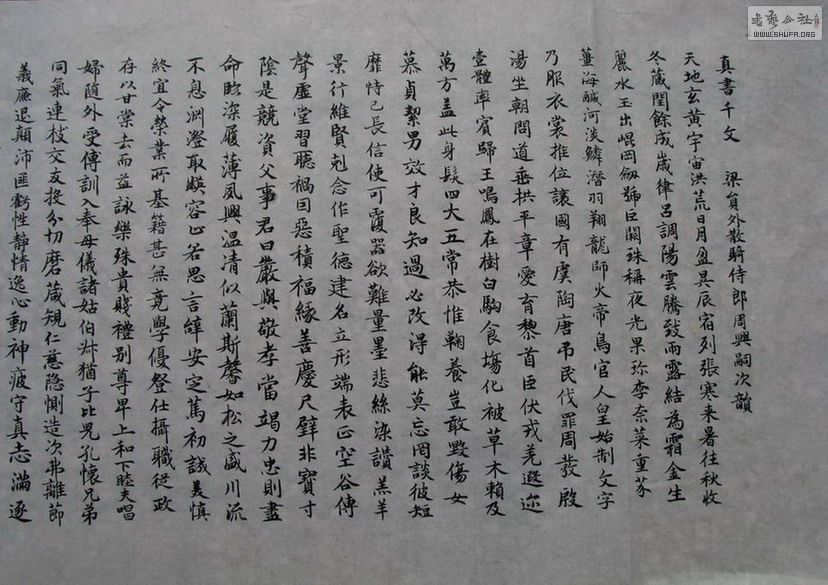 真書千文 梁負外散騎侍郎周興嗣次韻
天地玄黃宇宙洪荒日月盈昃辰宿列張寒来暑往秋收
冬蔵閏餘成歲律呂調陽雲騰致雨露結為霜金生
麗水玉出崐岡劒號巨闕珠稱夜光果珎李柰菜重芥
薑海鹹河淡鱗潛羽翔龍師火帝鳥官人皇始制文字
乃服衣裳推位讓國有虞陶唐吊民伐罪周發殷
湯坐朝問道垂拱平章愛育黎首臣伏戎羌遐迩
壹體率賓歸王鳴鳳在樹白駒食場化被草木賴及
萬方盖此身髮四大五常恭惟鞠養豈敢毀傷女
慕貞絜男效才良知過必改得能莫忘罔談彼短
靡恃己長信使可覆器欲難量墨悲絲染讚羔羊
景行維賢剋念作聖德建名立形端表正空谷傳
聲虛堂習聽禍因惡積福緣善慶尺璧非寶寸
陰是競資父事君曰嚴與敬孝當竭力忠則盡
命臨深履薄夙興温清似蘭斯馨如松之盛川流
不息淵澄取暎容止若思言辭安定篤初誠美慎
終宜令榮業所基籍甚無竟學優登仕攝職從政
存以甘棠去而益詠樂殊貴賤禮別尊卑上和下睦夫唱
婦隨外受傅訓入奉母儀諸姑伯叔猶子比兒孔懷兄弟
同氣連枝交友投分切磨葴規仁慈隐惻造次弗離節
義廉退顛沛匪虧性靜情逸心動神疲守真志滿逐
書藝公社
WWW.SHUFA.ORG